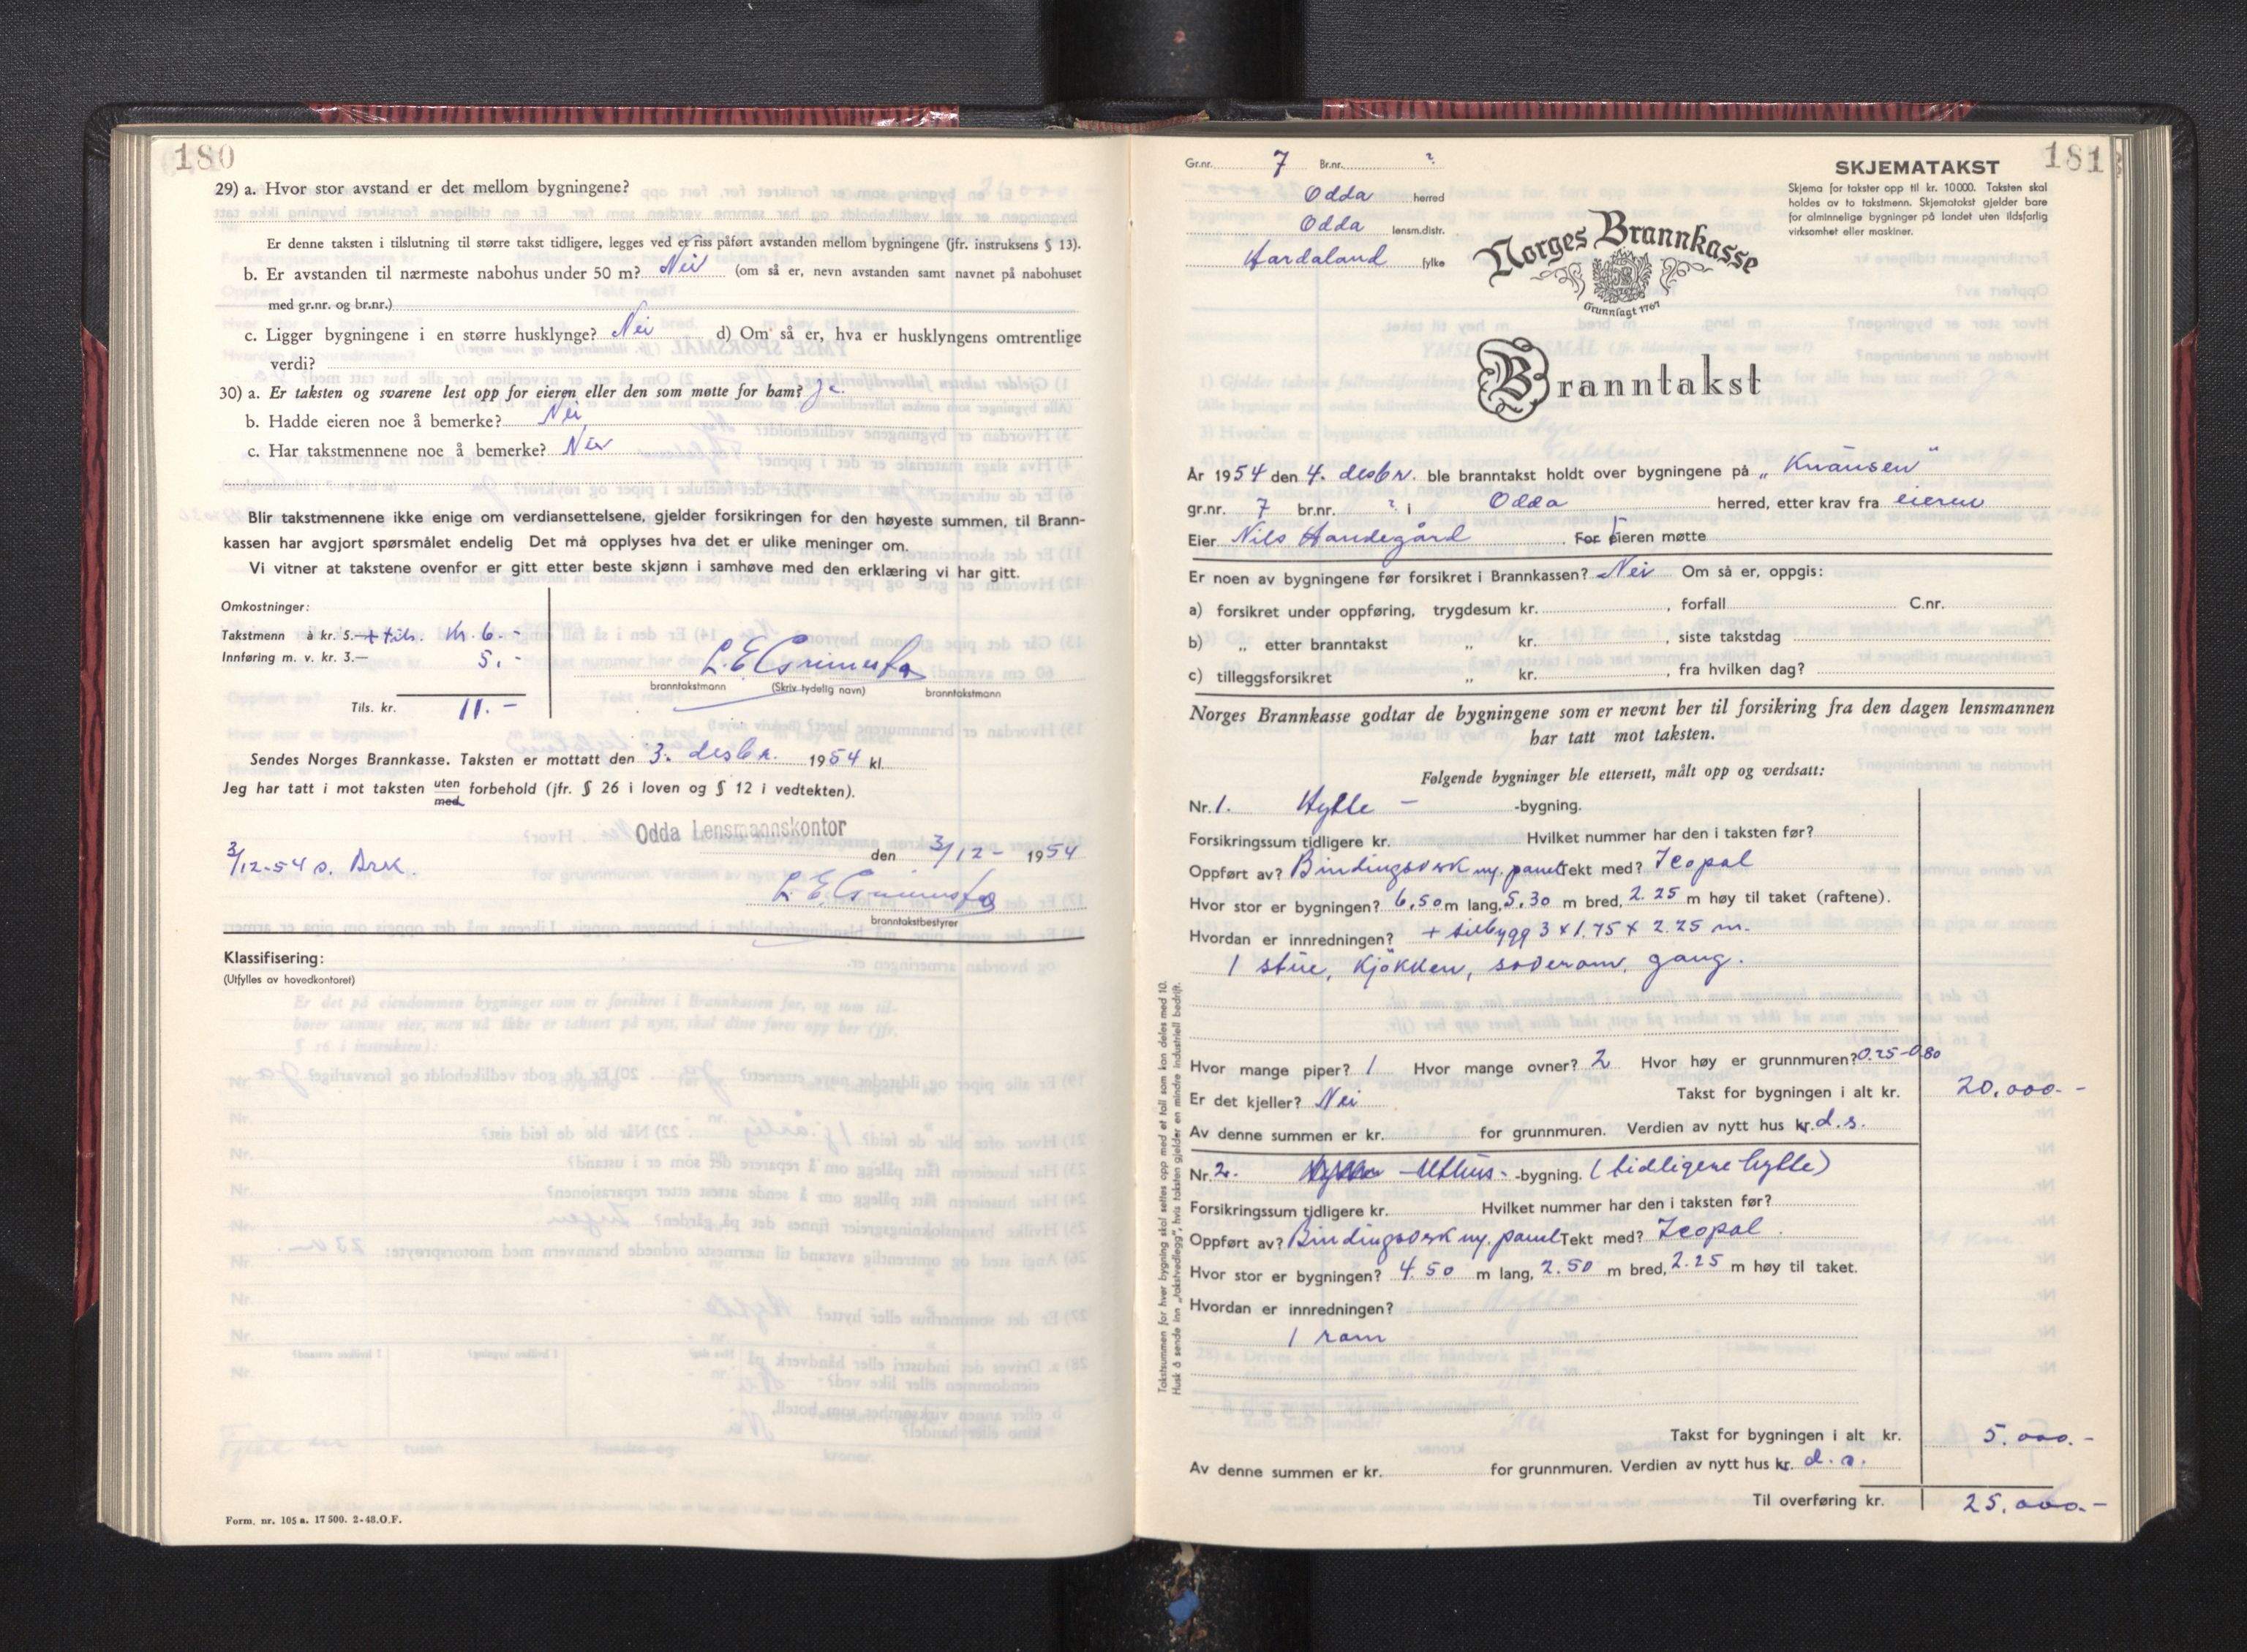 180
29) a. Hvor stor avstand er det mellom bygningene?
Er denne taksten i tilslutning til større takst tidligere, legges ved et riss påført avstanden mellom bygningene (jfr. instruksens § 13).
b. Er avstanden til nærmeste nabohus under 50 m? Nei (om så er, nevn avstanden samt navnet på nabohuset
med gr.nr. og br.nr.)
c. Ligger bygningene i en større husklynge? Nei d) Om så er, hva er husklyngens omtrentlige
verdi?
30) a. Er taksten og svarene lest opp for eieren eller den som møtte for ham? Ja.
b. Hadde eieren noe å bemerke? Nei
c. Har takstmennene noe å bemerke? Nei
Blir takstmennene ikke enige om verdiansettelsene, gjelder forsikringen for den høyeste summen, til Brann-
kassen har avgjort spørsmålet endelig Det må opplyses hva det er ulike meninger om.
Vi vitner at takstene ovenfor er gitt etter beste skjønn i samhøve med den erklæring vi har gitt.
Omkostninger:
Takstmenn à kr. 5.— + till. kr. 6.-
Innføring m. v. kr. 3.— 5.-
L. E. Grimesta
branntakstmann (Skriv tydelig navn) branntakstmann
Tils. kr. 11.-
Sendes Norges Brannkasse. Taksten er mottatt den 3. desbr. 1954 kl.
Jeg har tatt i mot taksten uten
med forbehold (jfr. § 26 i loven og § 12 i vedtekten).
Odda Lensmannskontor
3/12-54 s. Brk. den 3/12- 1954
L. E. Grimesta
branntakstbestyrer
Klassifisering:
(Utfylles av hovedkontoret)
Form. nr. 105 a. 17 500. 2-48. O.F.
181
Gr.nr. 7 Br.nr. ?
Odda herred
Odda lensm.distr.
Hordaland fylke
SKJEMATAKST
Skjema for takster opp til kr. 10 000. Taksten skal
holdes av to takstmenn. Skjematakst gjelder bare
for alminnelige bygninger på landet uten ildsfarlig
virksomhet eller maskiner.
Norges Brannkasse
Grunnlagt 1767
Branntakst
År 1954 den 4. desbr. ble branntakst holdt over bygningene på „Knausen"
gr.nr. 7 br.nr. ? i Odda herred, etter krav fra eieren
Eier Nils Handegård. For eieren møtte
Er noen av bygningene før forsikret i Brannkassen? Nei Om så er, oppgis:
a) forsikret under oppføring, trygdesum kr. , forfall C.nr.
b) „ etter branntakst „ kr. , siste takstdag
c) tilleggsforsikret „ kr. , fra hvilken dag?
Norges Brannkasse godtar de bygningene som er nevnt her til forsikring fra den dagen lensmannen
har tatt mot taksten.
Følgende bygninger ble ettersett, målt opp og verdsatt:
Nr. 1. Hytte - -bygning.
Forsikringssum tidligere kr. Hvilket nummer har den i taksten før?
Oppført av? Bindingsverk m. panel Tekt med? Icopal
Hvor stor er bygningen? 6.50 m lang, 5.30 m bred, 2.25 m høy til taket (raftene).
Hvordan er innredningen? + tilbygg 3 x 1.75 x 2.25 m.
1 stue, kjøkken, soverom, gang.
Hvor mange piper? 1 Hvor mange ovner? 2 Hvor høy er grunnmuren? 0.25-0.80
Er det kjeller? Nei Takst for bygningen i alt kr. 20.000.-
Av denne summen er kr. for grunnmuren. Verdien av nytt hus kr. d.s.
Nr. 2. Uthus- -bygning. (tidligere hytte)
Forsikringssum tidligere kr. Hvilket nummer har den i taksten før?
Oppført av? Bindingsverk m. panel Tekt med? Icopal.
Hvor stor er bygningen? 4.50 m lang, 2.50 m bred, 2.25 m høy til taket.
Hvordan er innredningen?
1 rom
Takst for bygningen i alt kr. 5.000.-
Av denne summen er kr. for grunnmuren. Verdien av nytt hus kr. d.s.
Til overføring kr. 25.000.-
Takstsummen for hver bygning skal settes opp med et tall som kan deles med 10.
Husk å sende inn „takstvedlegg", hvis taksten gjelder en mindre industriell bedrift.